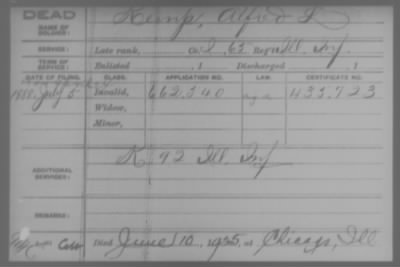 DEAD
NAME OF SOLDIER: Kemp, Alfred L
SERVICE: Late rank, Co. 63 Reg't Ill. Inf.
TERM OF SERVICE: Enlisted , 1 Discharged , 1
DATE OF FILING. CLASS. APPLICATION NO. LAW. CERTIFICATE NO.
1888, July 5 Invalid, 662.540 433.723
Widow,
Minor,
ADDITIONAL SERVICES: K 92 Ill. Inf
REMARKS:
Died June 10, 1925, at Chicago, Ill